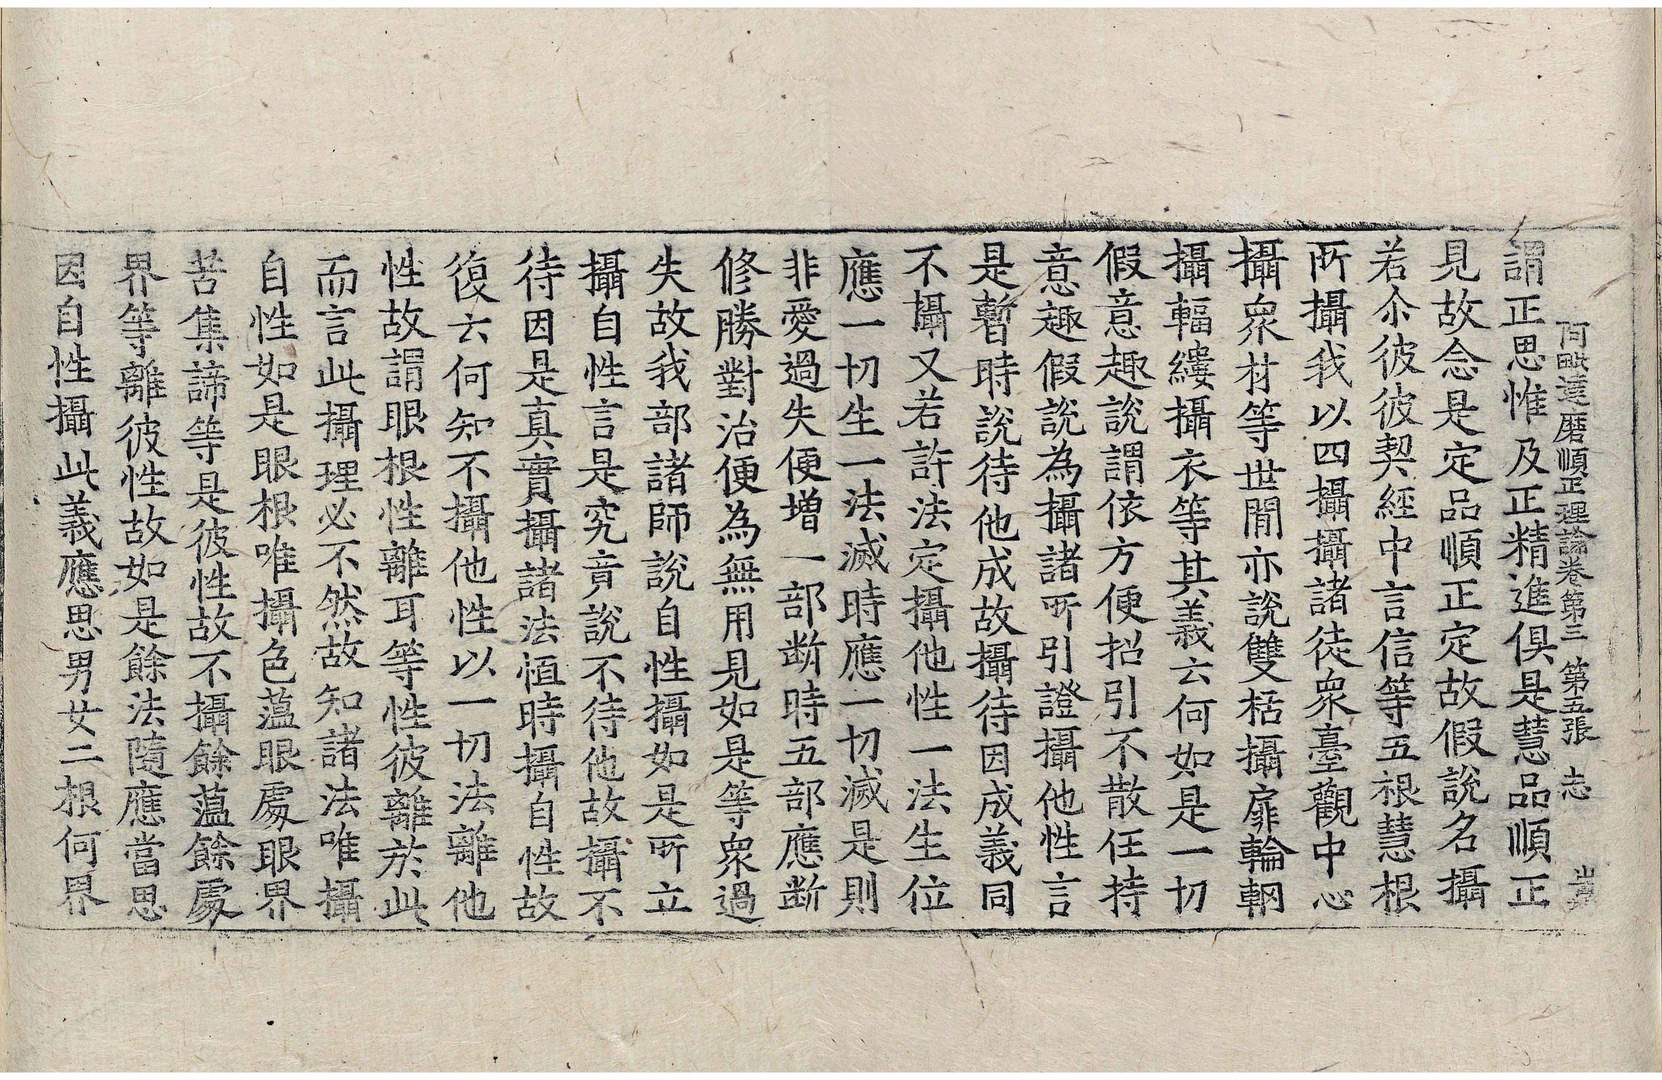 阿毗達磨順正理論卷第三 第五張 志
謂正思惟及正精進俱是慧品順正
見故念是定品順正定故假說名攝
若尒彼彼契經中言信等五根慧根
所攝我以四攝攝諸徒衆臺觀中心
攝衆材等世間亦說雙栝攝扉輪輞
攝輻縷攝衣等其義云何如是一切
假意趣說謂依方便招引不散任持
意趣假說為攝諸所引證攝他性言
是暫時說待他成故攝待因成義同
不攝又若許法定攝他性一法生位
應一切生一法滅時應一切滅是則
非愛過失便增一部斷時五部應斷
修勝對治便為無用見如是等衆過
失故我部諸師說自性攝如是所立
攝自性言是究竟說不待他故攝不
待因是真實攝諸法恒時攝自性故
復云何知不攝他性以一切法離他
性故謂眼根性離耳等性彼離於此
而言此攝理必不然故知諸法唯攝
自性如是眼根唯攝色蘊眼處眼界
苦集諦等是彼性故不攝餘蘊餘處
界等離彼性故如是餘法隨應當思
因自性攝此義應思男女二根何界